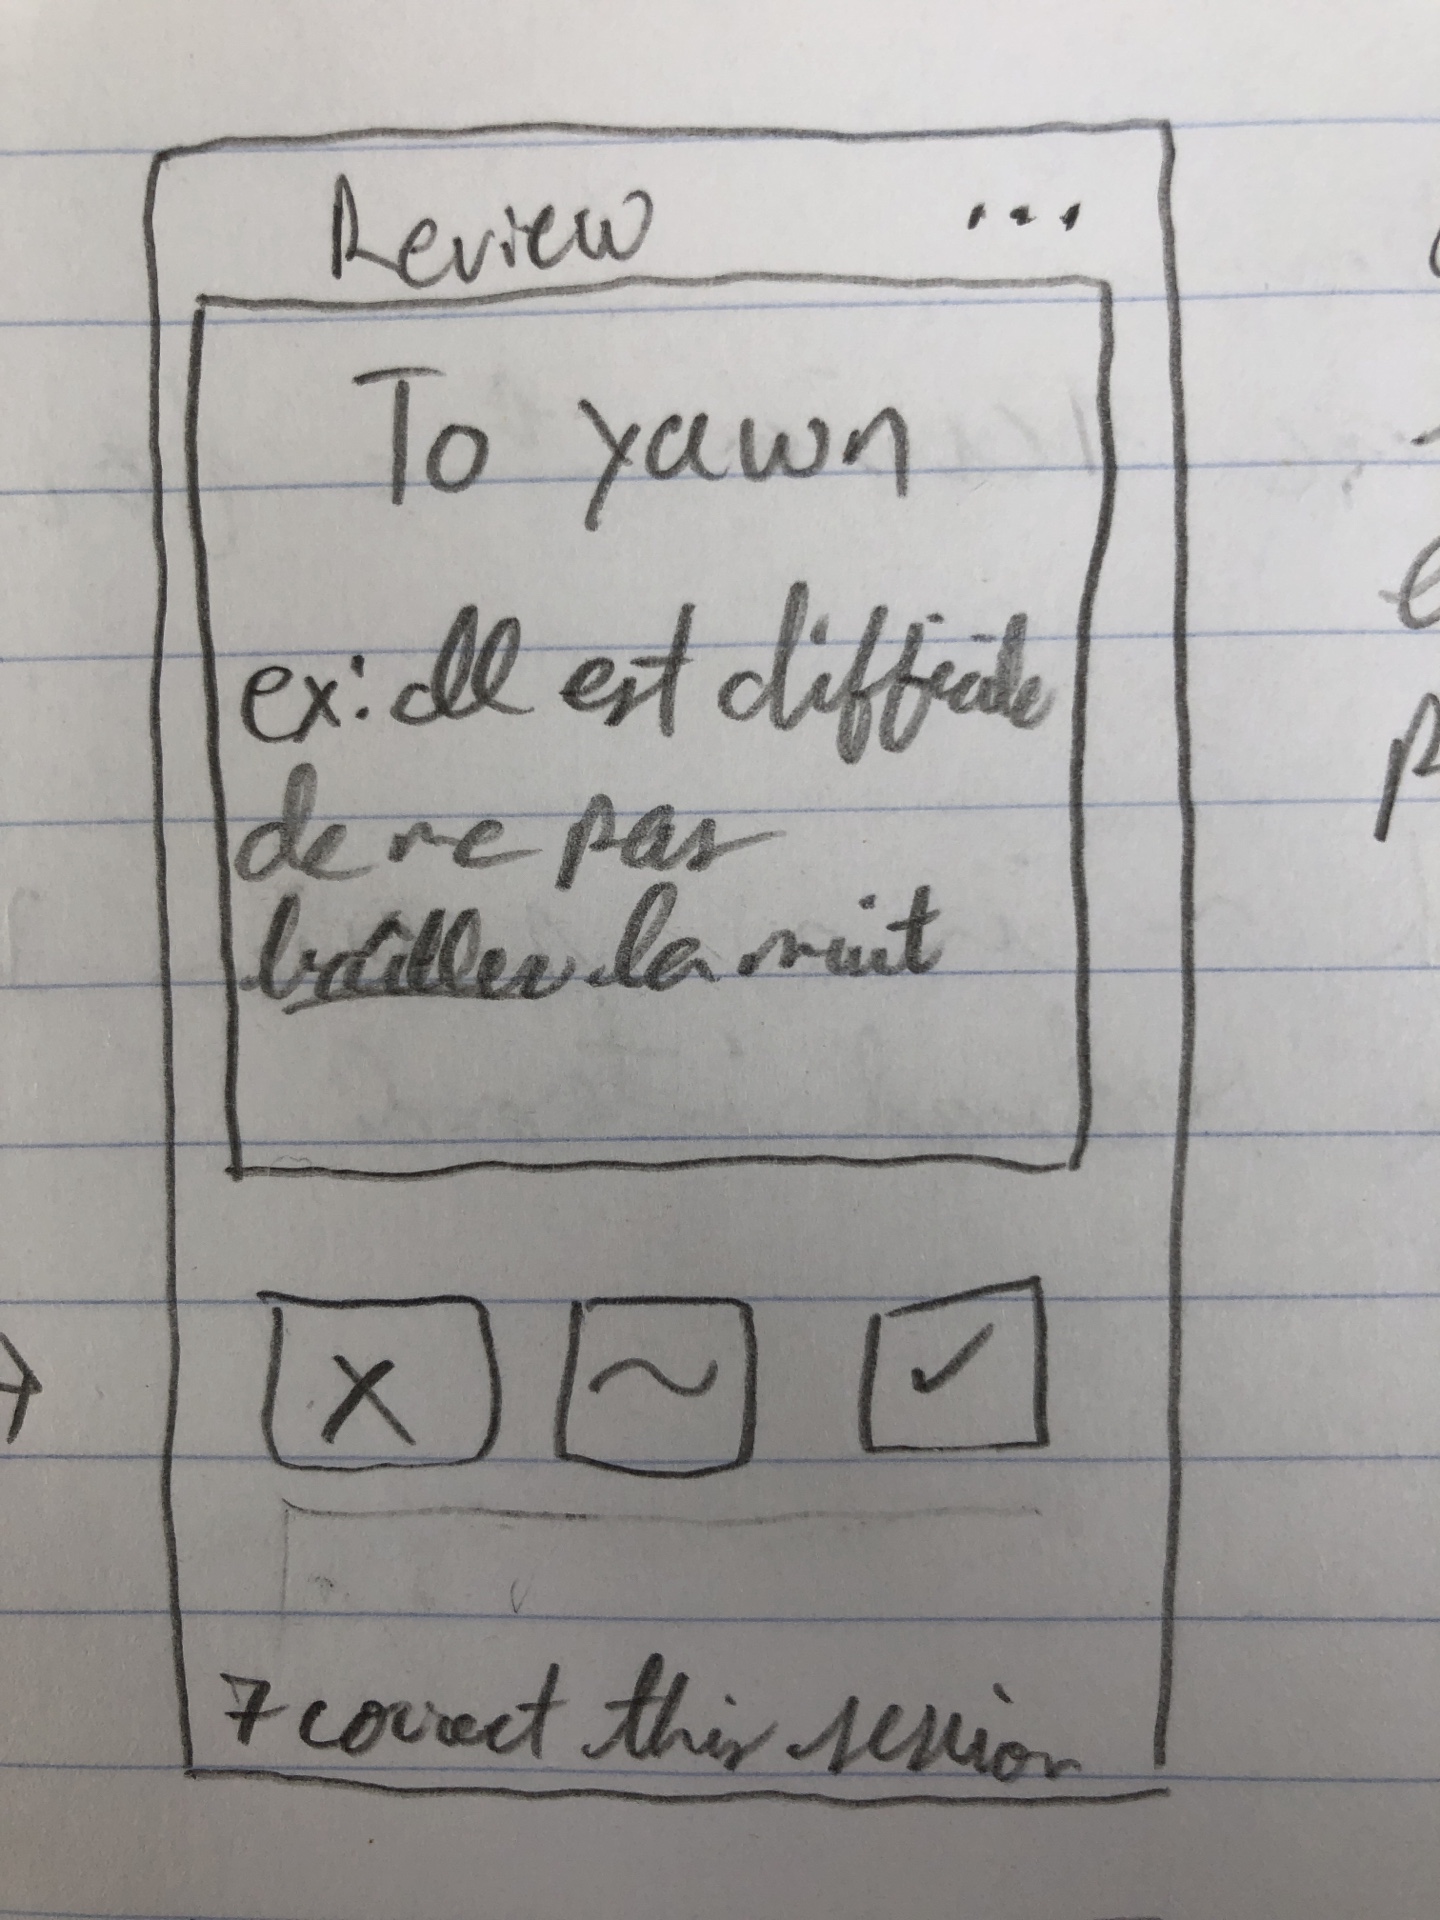 Review ...
To yawn
ex: Il est difficile
de ne pas
bâiller la nuit
X ~ ✓
7 correct this session